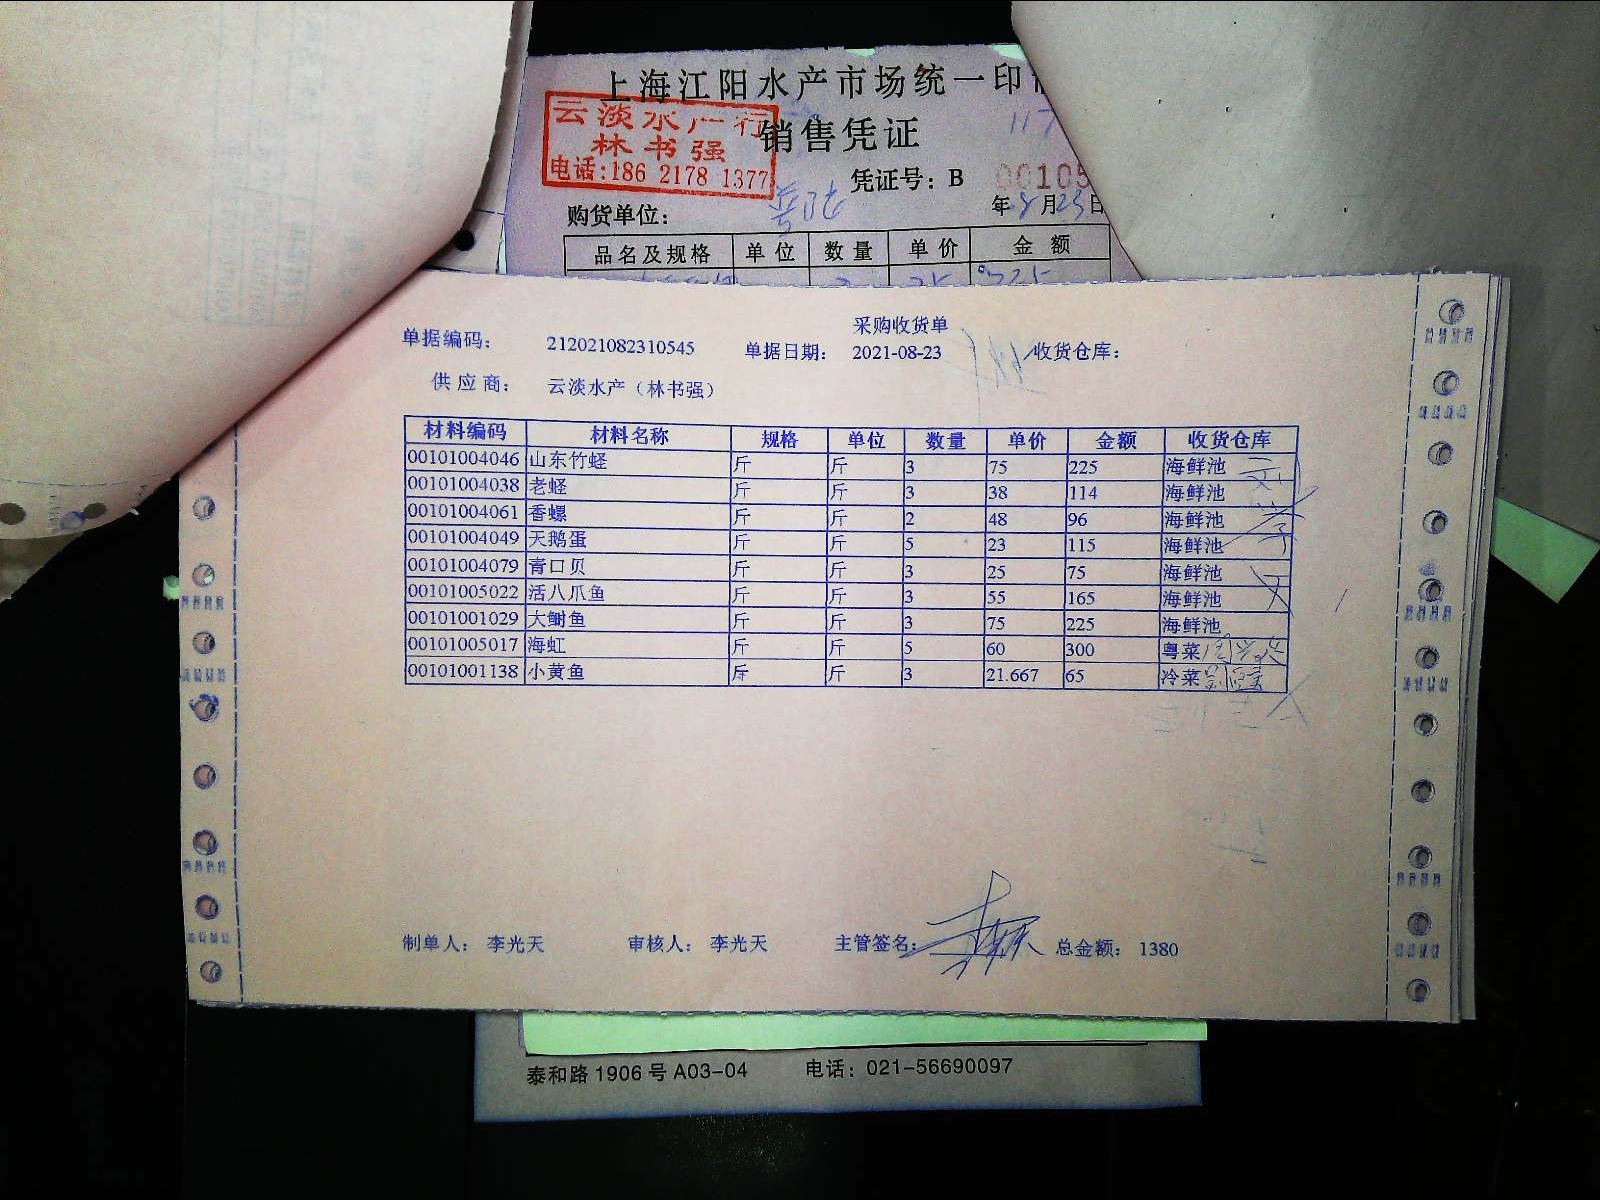 上海江阳水产市场统一印
云淡水产行
林书强
电话:186 2178 1377
销售凭证
凭证号: B 00105
购货单位:
年8月23日
品名及规格 单位 数量 单价 金额
采购收货单
单据编码: 212021082310545 单据日期: 2021-08-23 收货仓库:
供应商: 云淡水产（林书强）
材料编码 材料名称 规格 单位 数量 单价 金额 收货仓库
00101004046 山东竹蛏 斤 斤 3 75 225 海鲜池
00101004038 老蛏 斤 斤 3 38 114 海鲜池
00101004061 香螺 斤 斤 2 48 96 海鲜池
00101004049 天鹅蛋 斤 斤 5 23 115 海鲜池
00101004079 青口贝 斤 斤 3 25 75 海鲜池
00101005022 活八爪鱼 斤 斤 3 55 165 海鲜池
00101001029 大鲥鱼 斤 斤 3 75 225 海鲜池
00101005017 海虹 斤 斤 5 60 300 粤菜
00101001138 小黄鱼 斤 斤 3 21.667 65 冷菜
制单人: 李光天 审核人: 李光天 主管签名: 总金额: 1380
泰和路1906号A03-04 电话: 021-56690097